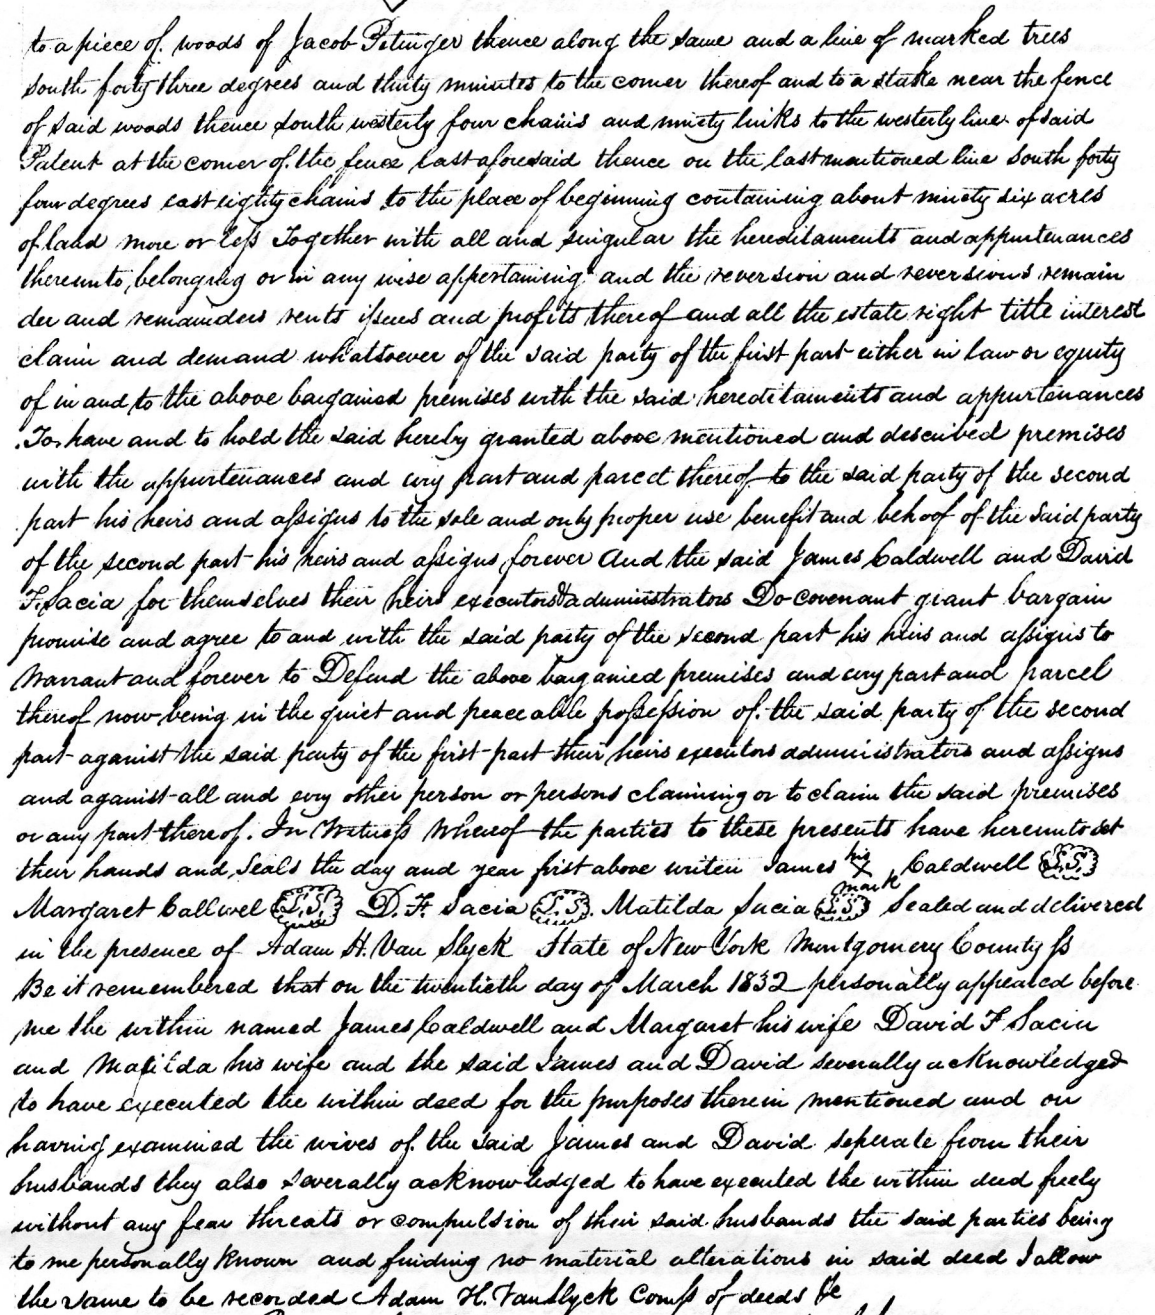 to a piece of woods of Jacob Petinger thence along the same and a line of marked trees
south forty three degrees and thirty minutes to the corner thereof and to a stake near the fence
of said woods thence south westerly four chains and ninety links to the westerly line of said
Patent at the corner of the fence last aforesaid thence on the last mentioned line south forty
four degrees east eighty chains to the place of beginning containing about ninety six acres
of land more or less Together with all and singular the hereditaments and appurtenances
thereunto belonging or in any wise appertaining and the reversion and reversions remain
der and remainders rents issues and profits thereof and all the estate right title interest
claim and demand whatsoever of the said party of the first part either in law or equity
of in and to the above bargained premises with the said hereditaments and appurtenances
To have and to hold the said hereby granted above mentioned and described premises
with the appurtenances and evry part and parcel thereof to the said party of the second
part his heirs and assigns to the sole and only proper use benefit and behoof of the said party
of the second part his heirs and assigns forever And the said James Caldwell and David
F. Sacia for themselves their heirs executors & administrators Do covenant grant bargain
promise and agree to and with the said party of the second part his heirs and assigns to
Warrant and forever to Defend the above bargained premises and evry part and parcel
thereof now being in the quiet and peaceable possession of the said party of the second
part against the said party of the first part their heirs executors administrators and assigns
and against all and evry other person or persons claiming or to claim the said premises
or any part thereof. In Witness Whereof the parties to these presents have hereunto set
their hands and seals the day and year first above writen James his X mark Caldwell L.S.
Margaret Callwel L.S. D. F. Sacia L.S. Matilda Sacia L.S. Sealed and delivered
in the presence of Adam H. Van Slyck State of New York Montgomery County ss
Be it remembered that on the twentieth day of March 1832 personally appeared before
me the within named James Caldwell and Margaret his wife David F Sacia
and Matilda his wife and the said James and David severally acknowledged
to have executed the within deed for the purposes therein mentioned and on
having examined the wives of the said James and David seperate from their
husbands they also severally acknowledged to have executed the within deed freely
without any fear threats or compulsion of their said husbands the said parties being
to me personally known and finding no material alterations in said deed I allow
the same to be recorded Adam H. Van Slyck Comss of deeds &c